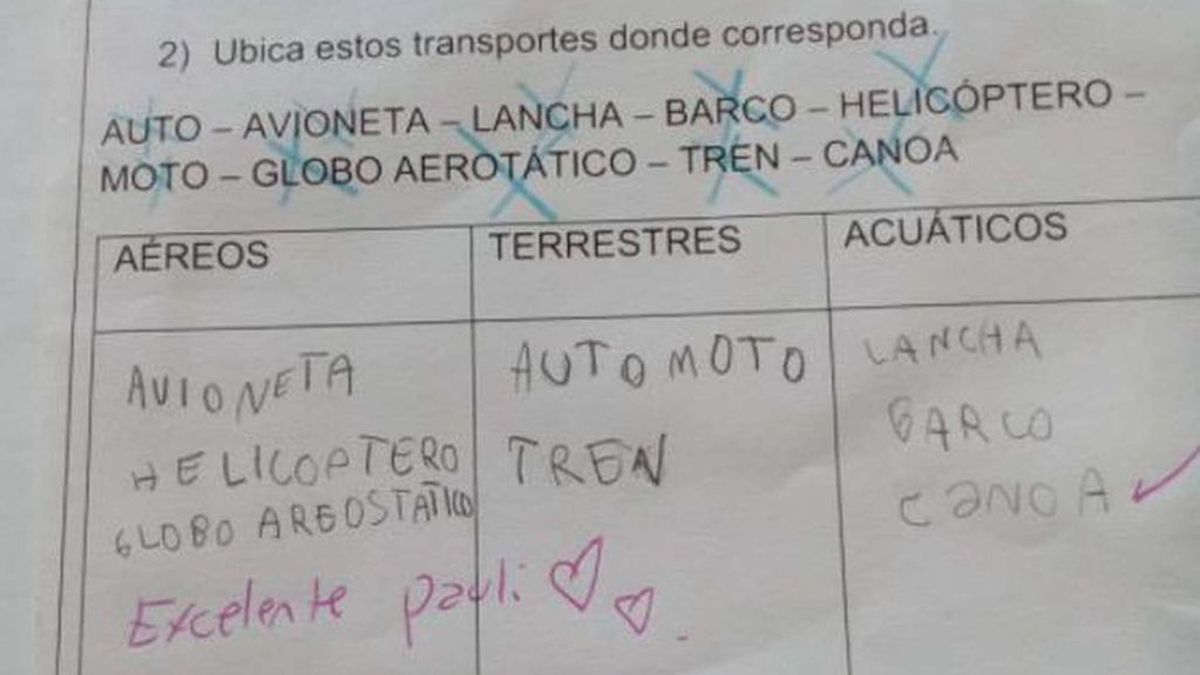 2) Ubica estos transportes donde corresponda.
AUTO – AVIONETA – LANCHA – BARCO – HELICÓPTERO –
MOTO – GLOBO AEROTÁTICO – TREN – CANOA
AÉREOS TERRESTRES ACUÁTICOS
AVIONETA AUTO MOTO LANCHA
HELICOPTERO TREN BARCO
GLOBO AREOSTATICO CANOA
Excelente pauli